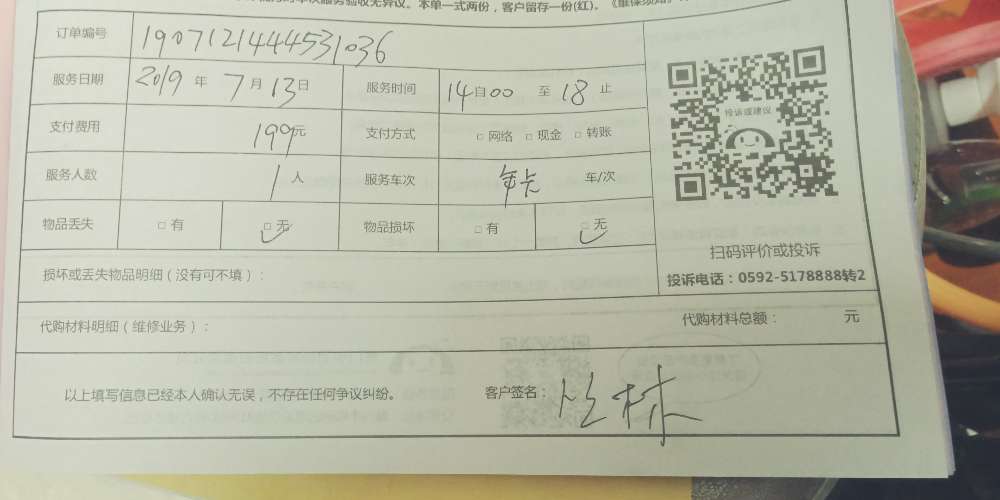 本次服务验收无异议。本单一式两份，客户留存一份(红)。《维保须知》
订单编号 1907121444531036
服务日期 2019 年 7 月 13 日 服务时间 14 自 00 至 18 止
支付费用 199 元 支付方式 □ 网络 □ 现金 □ 转账
服务人数 1 人 服务车次 年卡 车/次
物品丢失 □ 有 □ 无 物品损坏 □ 有 □ 无
投诉或建议
扫码评价或投诉
投诉电话：0592-5178888转2
损坏或丢失物品明细（没有可不填）：
代购材料明细（维修业务）： 代购材料总额： 元
以上填写信息已经本人确认无误，不存在任何争议纠纷。 客户签名：